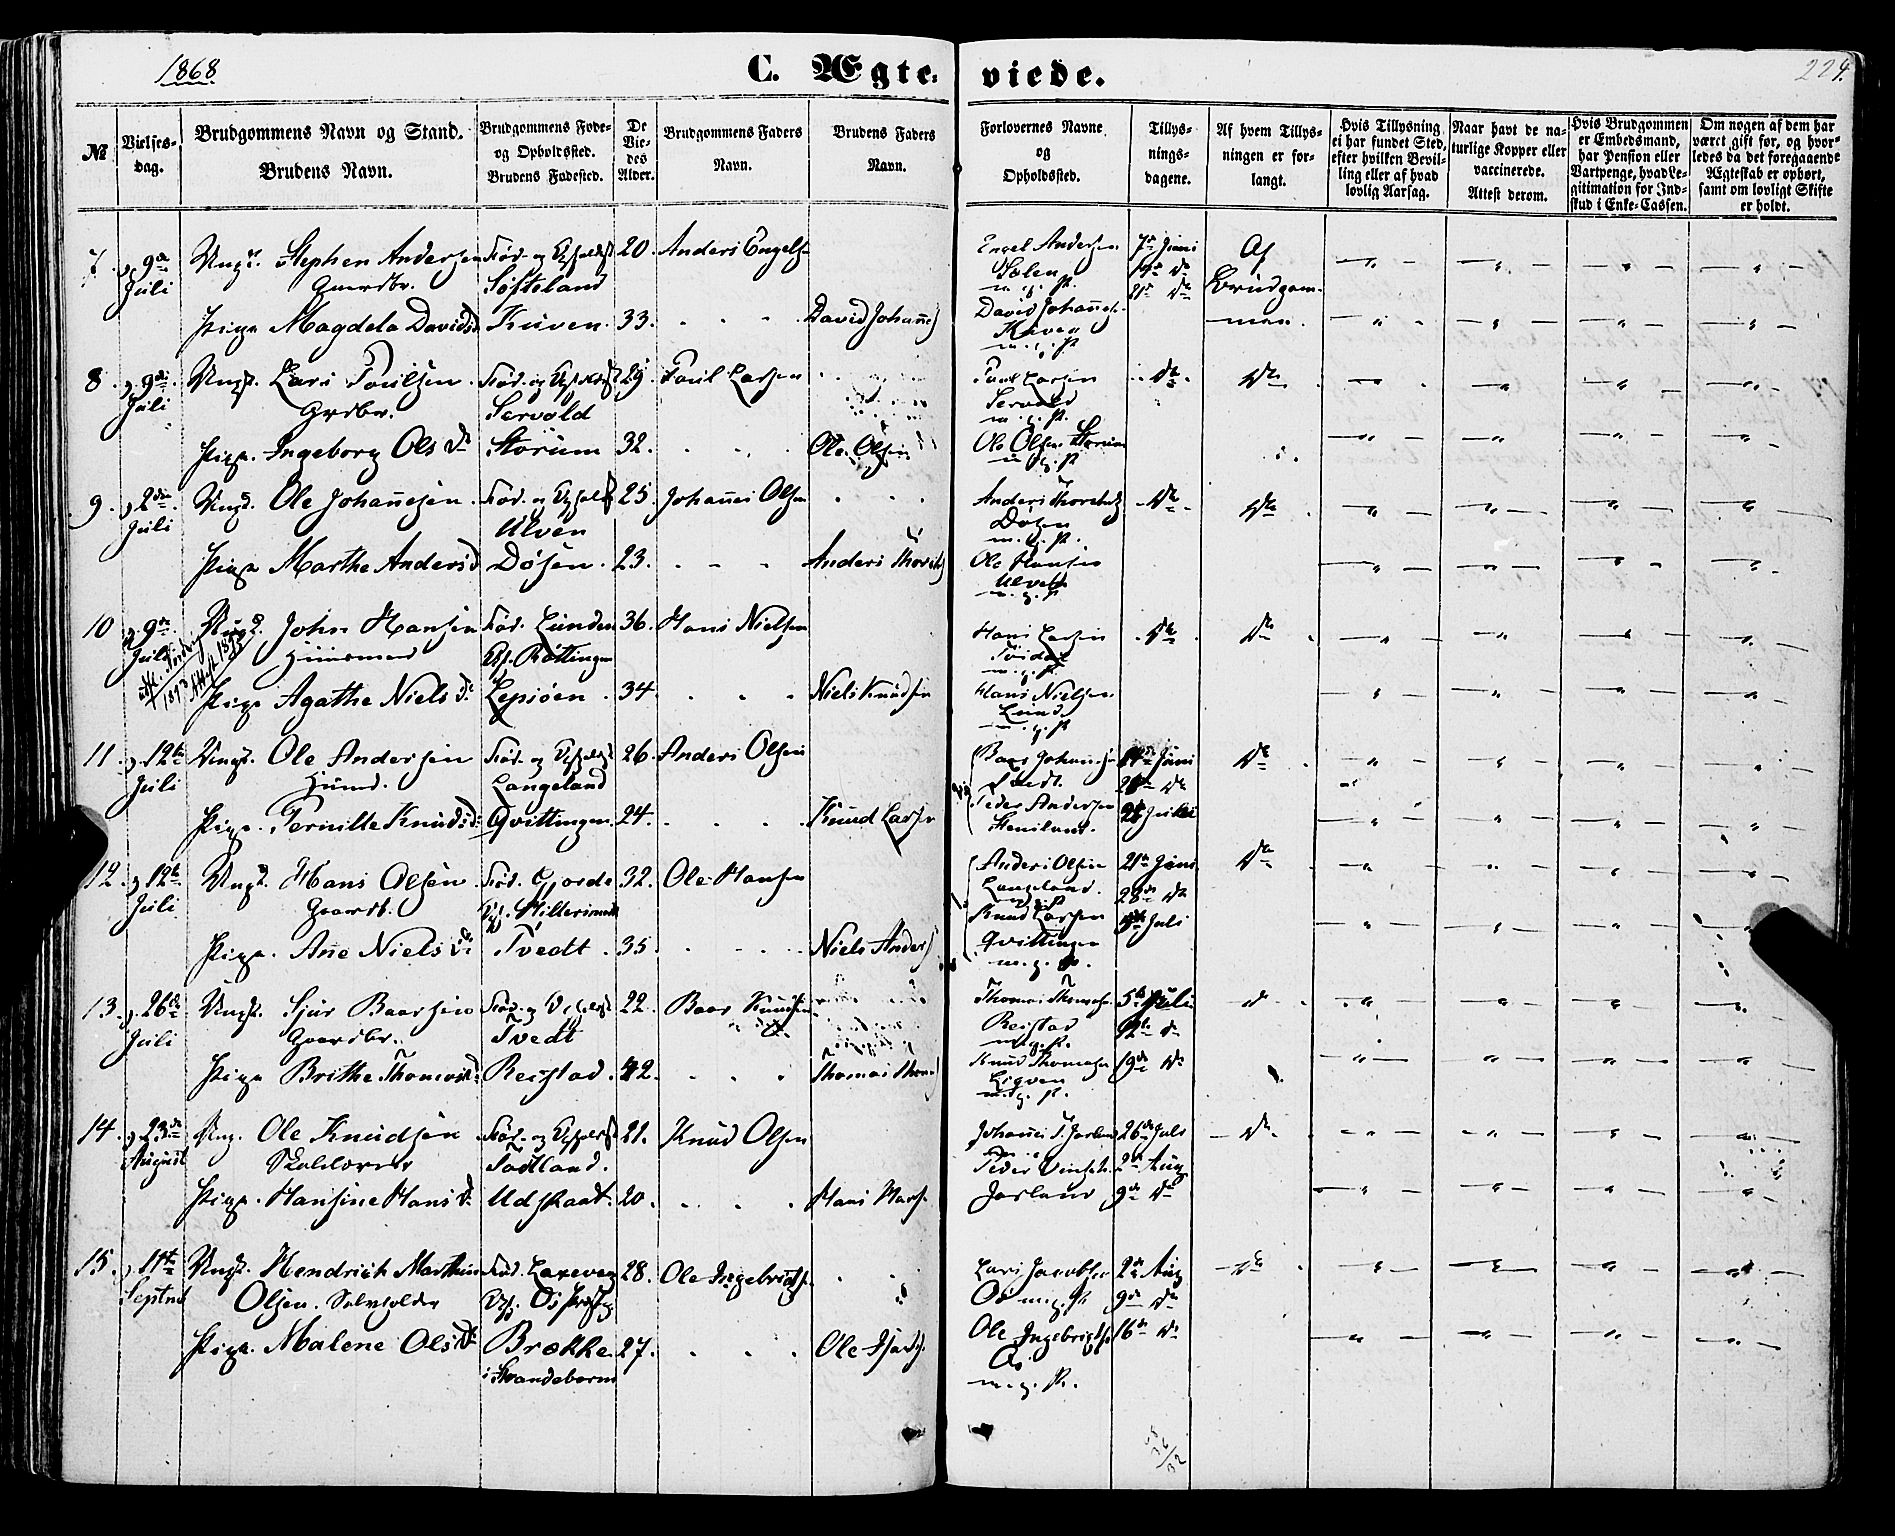 1868
C. Ægteviede.
224.
№
Vielses-dag.
Brudgommens Navn og Stand.
Brudens Navn.
Brudgommens Føde- og Opholdssted.
Brudens Fødested.
De Viedes Alder.
Brudgommens Faders Navn.
Brudens Faders Navn.
Forlovernes Navne og Opholdssted.
Tillysningsdagene.
Af hvem Tillysningen er forlangt.
Hvis Tillysning ei har fundet Sted, efter hvilken Bevilling eller af hvad lovlig Aarsag.
Naar havt de naturlige Kopper eller vaccinerede. Attest derom.
Hvis Brudgommen er Embedsmand, har Pension eller Vartpenge, hvad Legitimation for Indskud i Enke-Cassen.
Om nogen af dem har været gift før, og hvorledes da det foregaaende Ægteskab er ophørt, samt om lovligt Skifte er holdt.
7. 9de Juli Ungk. Stephen Andersen Gaardbr. Fød- og Opholdst. Søfteland 20. Anders Engels. Engel Andersen m. g. P. 7de Juni 14de do 21de do Af Brudgommen.
Pige Magdela Davidsd. Kuven. 33. David Johannes David Johannes. Kuven m. g. P.
8. 9de Juli Ungk. Lars Poulsen. Grdbr. Fød- og Opholdst. Servold 29. Poul Larsen Poul Larsen Servold m. g. P. do do
Pige. Ingeborg Olsdr. Storum 32. Ole Olsen Ole Olsen Storum m. g. P.
9. 2den Juli Ungk. Ole Johannesen. Fød- og Opholdst. Ulven 25. Johannes Olsen Anders Døsen m. g. P. do do
Pige Marthe Andersd. Døsen. 23. Anders Ole Hansen Ulven m. g. P.
10 9de Juli Ungk. John Hansen Huusmand Fød. Lunden Oph. Røttingen 36. Hans Nielsen Hans Larsen m. g. P. do do
1893 Attest 1893
Pige Agathe Nielsdr. Lepsøen. 34. Niels Knudsen Hans Nielsen Lund m. g. P.
11 12te Juli Ungk. Ole Andersen Huusmd. Fød- og Opholdst. Langeland 26. Anders Olsen Baar Johannes. Tvedt. 14de Juni 21de do do
Pige. Pernille Knudsdr. Qvittingen. 24. Knud Larsen Peder Andersen 28 Juni
12. 12te Juli Ungk. Hans Olsen Gaardb. Fød. Gjerde 32. Ole Hansen Anders Olsen Langeland. m. g. P. 21de Juni 28de do do
Pige. Ane Nielsdr. Tvedt 35. Niels Anders. Knud Larsen Qvittingen m. g. P. 5te Juli
13. 26de Juli Ungk. Sjur Baarsen Gaardbr. Fød- og Opholdst. Tvedt 22. Baar Knudsen Thomas Thomas. Reistad m. g. P. 5te Juli 12te do do
Pige Brithe Thomasd. Reistad. 42. Thomas Thomas. Knud Thomasen Ligven m. g. P. 19de do
14. 23de August Ung. Ole Knudsen Skolelærer Fød- og Opholdst. Tødtland. 21. Knud Olsen Johannes T. Jorland 26de Juli 2den Aug do
Pige. Hansine Hansdr. Udskaat. 20. Hans Peder Jorland 9de do
15. 11te Septmb. Ungk. Hendrich Marthin Olsen. Selvholder Fød. Laxevaag Oph. Os 28. Ole Ingebrigts. Lars Jacobsen Os m. g. P. 2den Aug 9de do do
Pige. Malene Olsdr. Brække i Strandebarm 27. Ole Ole Ingebrigts. Os m. g. P. 16de do